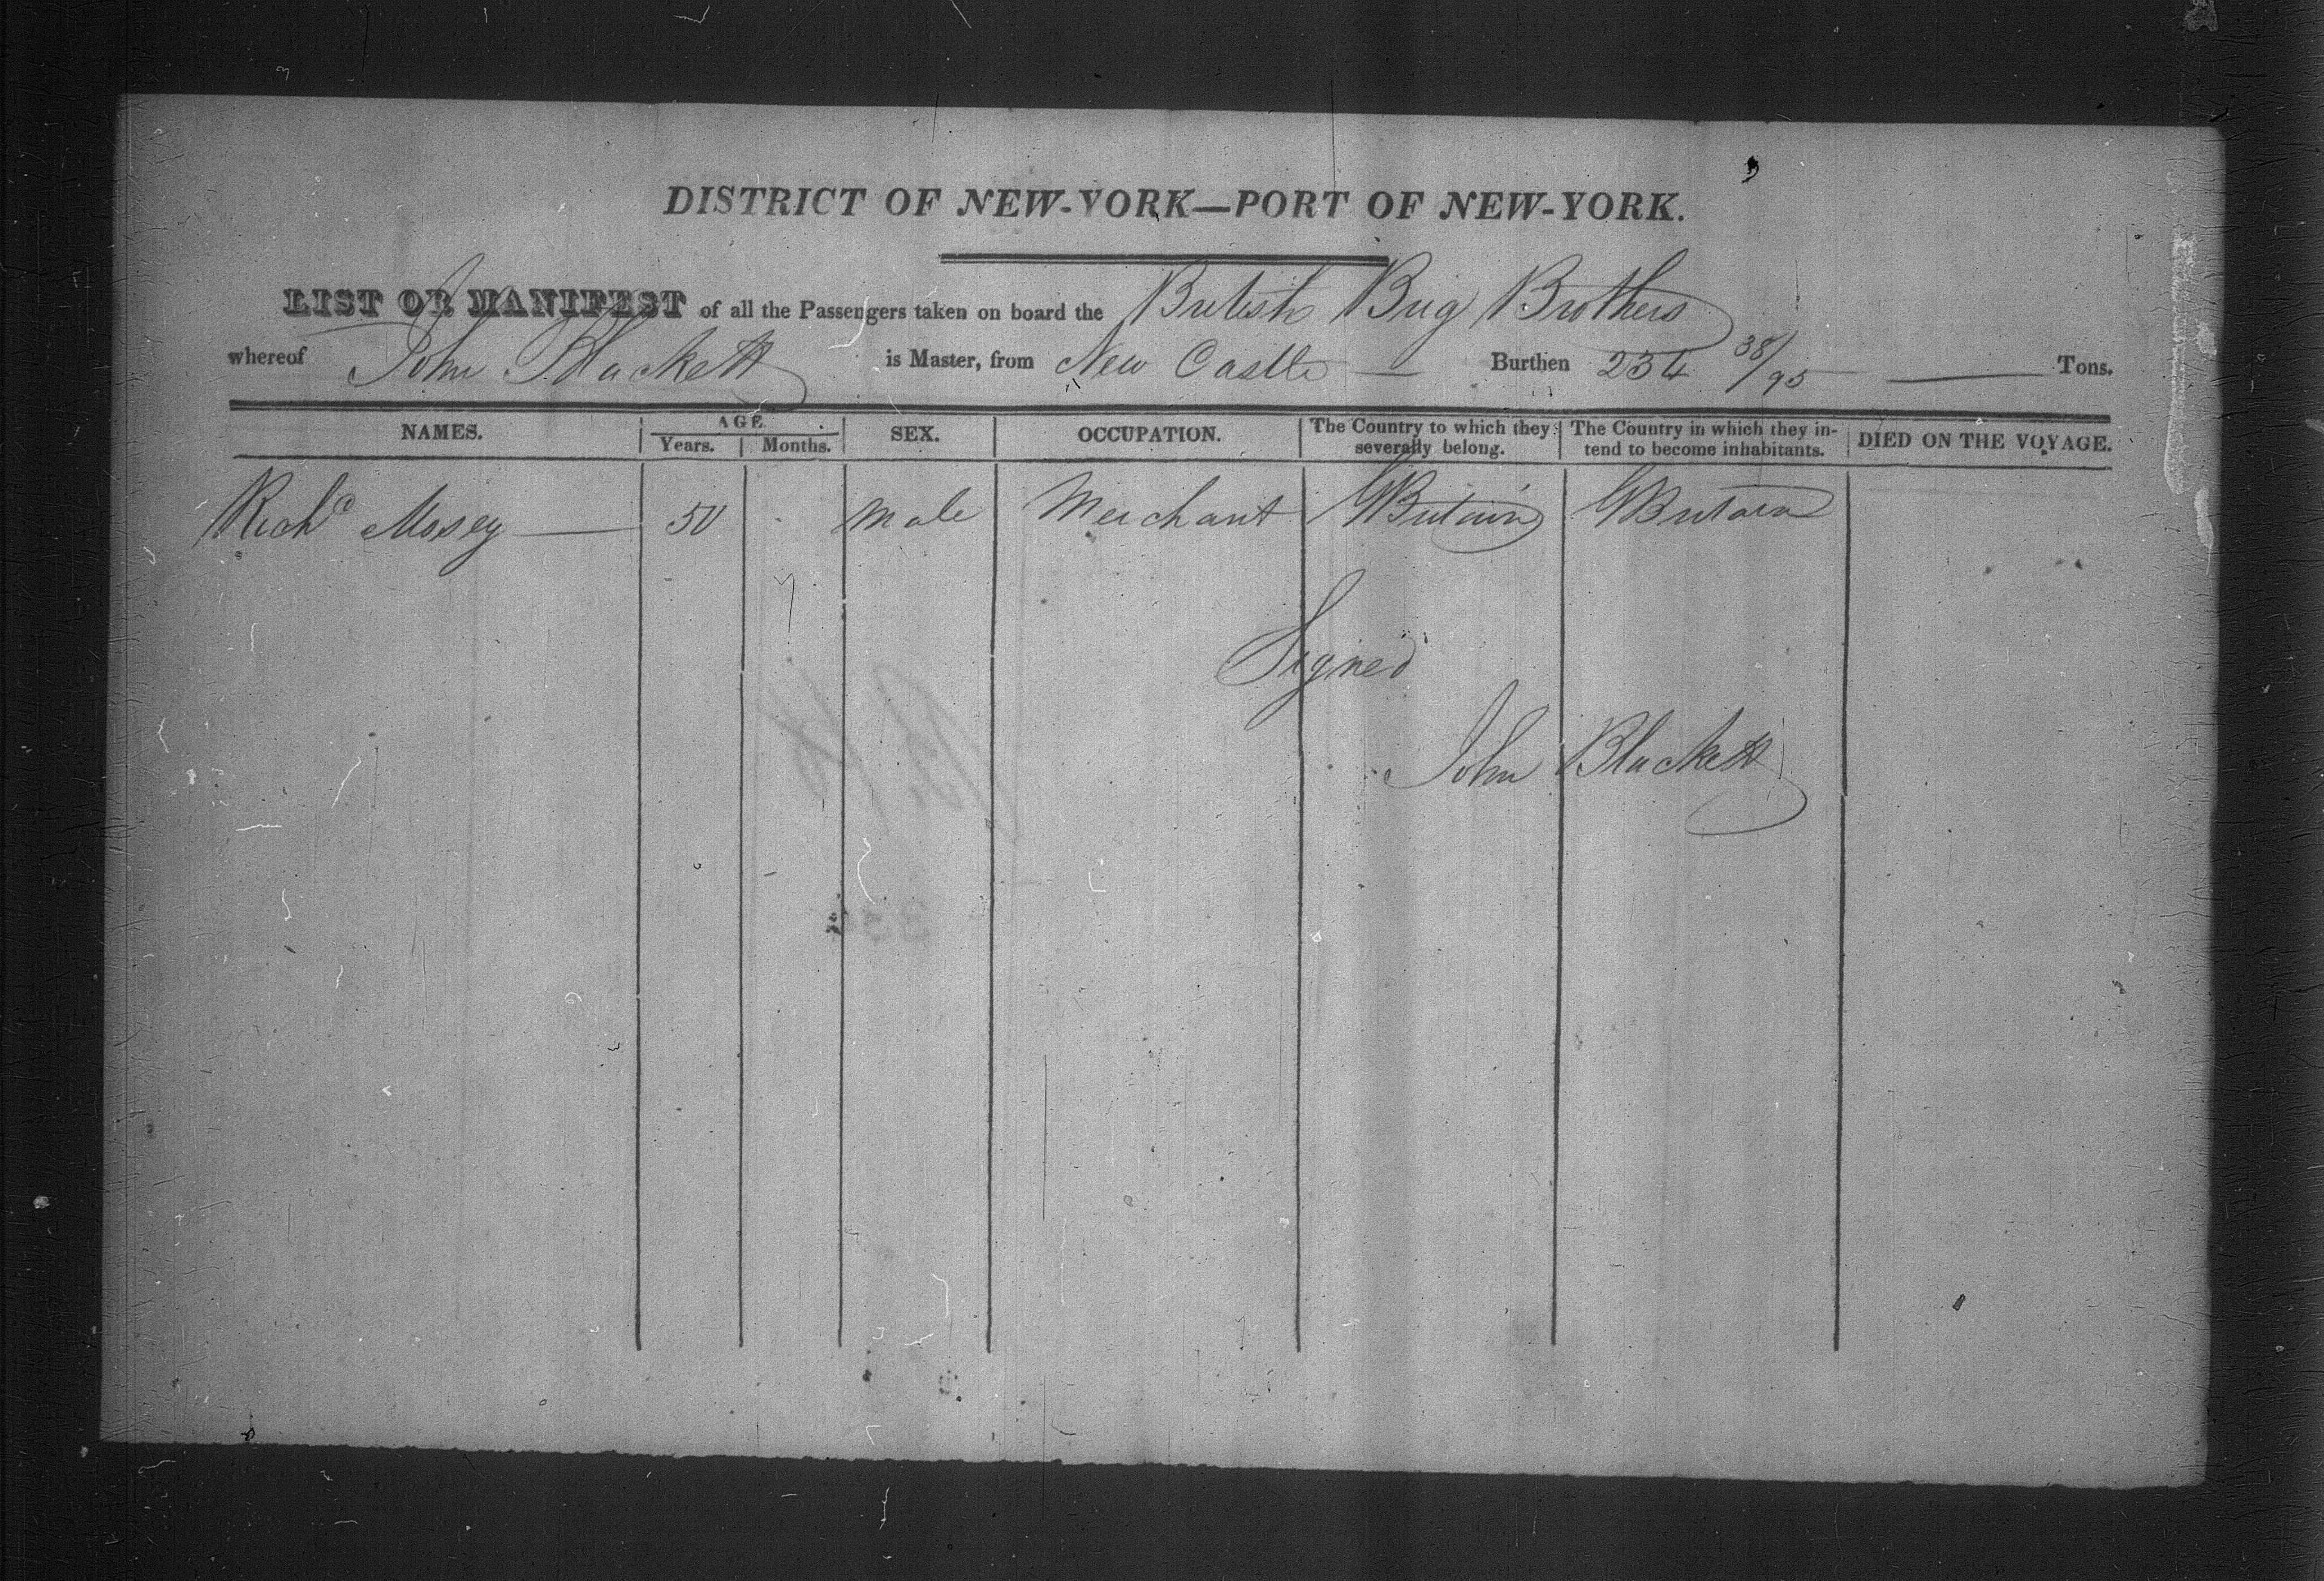 DISTRICT OF NEW-YORK—PORT OF NEW-YORK.
LIST OR MANIFEST of all the Passengers taken on board the British Brig Brothers
whereof John Blackett is Master, from New Castle — Burthen 234 38/95 — Tons.
NAMES. AGE. Years. Months. SEX. OCCUPATION. The Country to which they severally belong. The Country in which they in- tend to become inhabitants. DIED ON THE VOYAGE.
Richd Mosey — 50 male Merchant GBritain GBritain
Signed
John Blackett